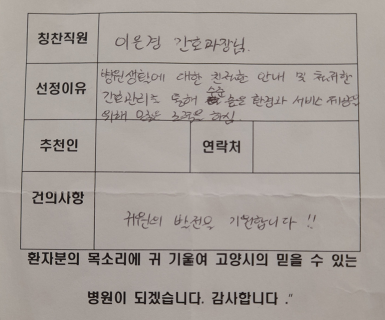 칭찬직원 이은경 간호과장님.
병원생활에 대한 친절한 안내 및 철저한
선정이유 간호관리를 통해 수준 높은 환경과 서비스 제공을
위해 모든 노력을 하심.
추천인 연락처
건의사항
귀원의 발전을 기원합니다 !!
환자분의 목소리에 귀 기울여 고양시의 믿을 수 있는
병원이 되겠습니다. 감사합니다 .”